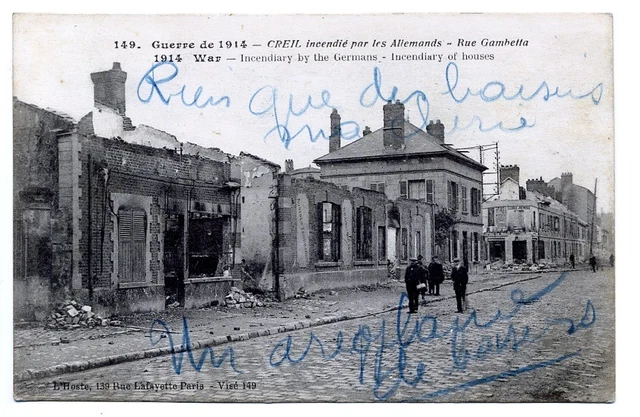 149. Guerre de 1914 — CREIL incendié par les Allemands - Rue Gambetta
1914 War — Incendiary by the Germans - Incendiary of houses
Rien que des baisers
Un
le baiser
L'Hoste, 139 Rue Lafayette Paris - Visé 149